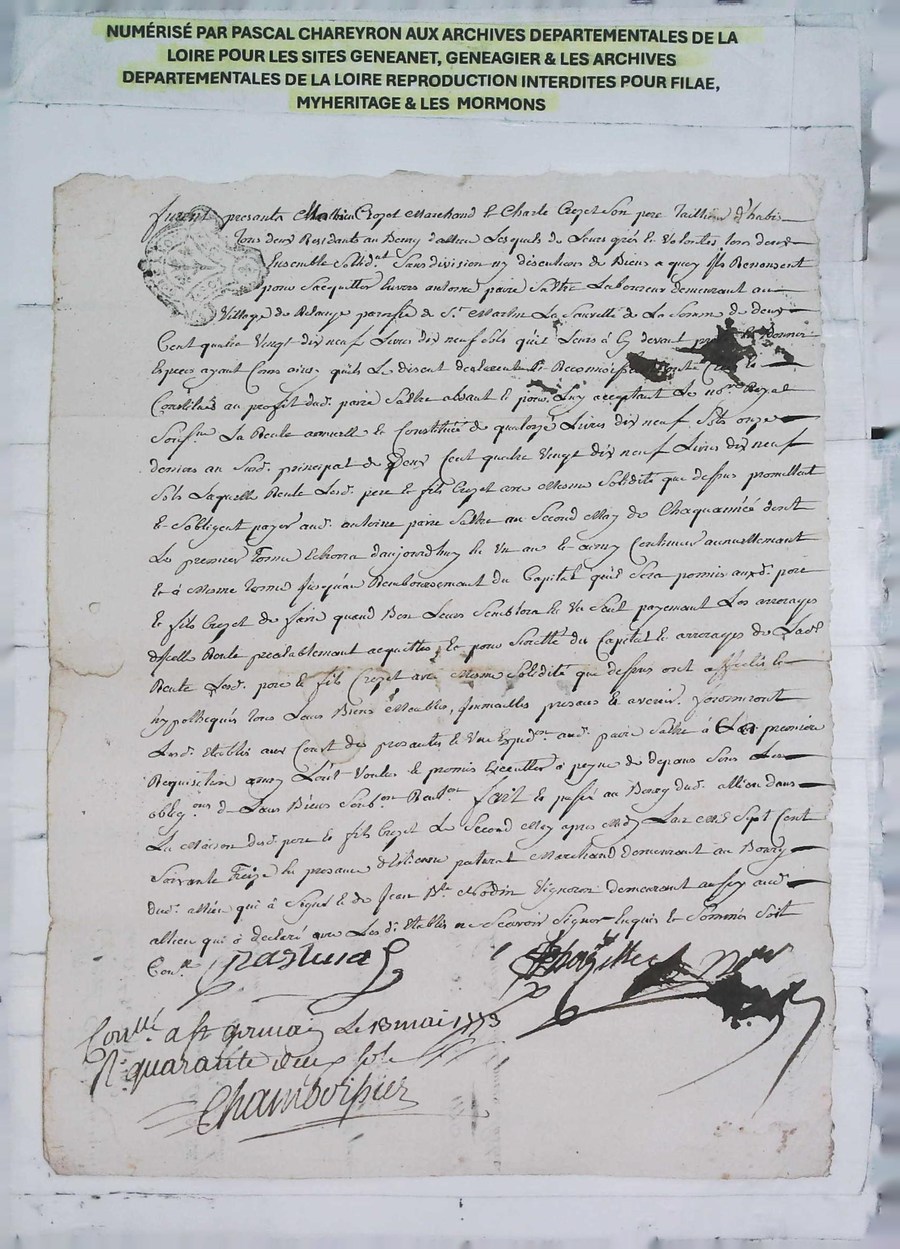 NUMÉRISÉ PAR PASCAL CHAREYRON AUX ARCHIVES DEPARTEMENTALES DE LA
LOIRE POUR LES SITES GENEANET, GENEAGIER & LES ARCHIVES
DEPARTEMENTALES DE LA LOIRE REPRODUCTION INTERDITES POUR FILAE,
MYHERITAGE & LES MORMONS
furent presants Mathieu Crozet Marchand et Charle Crozet son pere Tailleur d'habis
tous deux Residants au Bourg dallieu Lesquels de Leurs grés et Volontes tous deux
Ensemble Sollidt Sans division ny discution de Biens a quoy Ils Renonsent
pour Sacquitter Envers antoine paire Laboureur demeurant au
Village de parroisse de St Martin La Sauveté de La Somme de deux
Cent quatre Vingt dix neuf Livres dix neuf Sols quil Leurs à Cy devant
Especes ayant Cours ainsy quils Le disent declarent et Reconnoissent
Constitué au profit dud. paire absant et pour Luy acceptant Le nore Royal
Sousne La Rente annuelle et Constituée de quatorze Livres dix neuf Sols onze
deniers au Susd. principal de Deux Cent quatre Vingt dix neuf Livres dix neuf
Sols Laquelle Rente Lesd. pere et fils Crozet avec Mesme Solidité que dessus promettent
et Sobligent payer aud. antoine paire au Second May de Chaque année dont
Le premier Terme Echerra daujourdhuy En Un an et ainsy Continuer annuellemant
et à Mesme Terme Jusquau Remboursement du Capital quil Sera permis auxd. pere
et fils Crozet de faire quand Bon Leurs Semblera En Un Seul payement Les arrerages
dicelle Rente prealablement acquittes, et pour Sureté du Capital et arrerages de Lade
Rente Lesd. pere et fils Crozet avec Mesme Solidité que dessus ont affectés et
hypothequés tous Leurs Biens Meubles, Immeubles presans et avenir. fourniront
Lesd. Etablis aux Cout des presantes et Une Expedon aud. paire à La premiere
Requisition ainsy Lont Voulus et promis Executter à peyne de depans Sous Les
obligons de Leurs Biens Fait et passé au Bourg dud. allieu dans
La Maison dud. pere et fils Crozet Le Second May apres Midy Lan Mil Sept Cent
Soixante Treize En presance dEstienne paturat Marchand demeurant au Bourg
dud. allieu qui à Signé et de Jean Bte Vigneron demeurant aussy aud.
allieu qui à declaré avec Les d. Etablis ne Scavoir Signer Enquis et Sommés Soit
Conlle
Conllé a st germain Le 13 mai 1773
R quarante deux sols